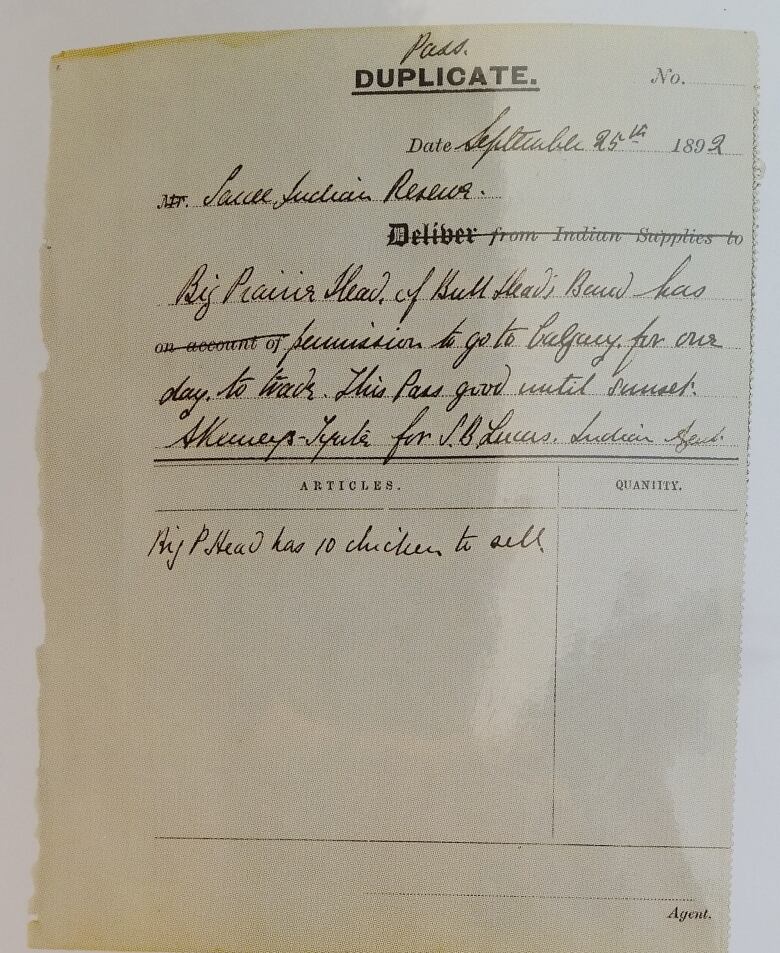 Pass.
DUPLICATE. No.
Date September 25th 1892
Mr. Sarcee Indian Reserve.
Deliver from Indian Supplies to
Big Prairie Head, of Bull Head's Band has
on account of permission to go to Calgary for one
day. to trade. This Pass good until sunset.
for S.B Lucas. Indian Agent.
ARTICLES. QUANTITY.
Big P. Head has 10 chicken to sell
Agent.